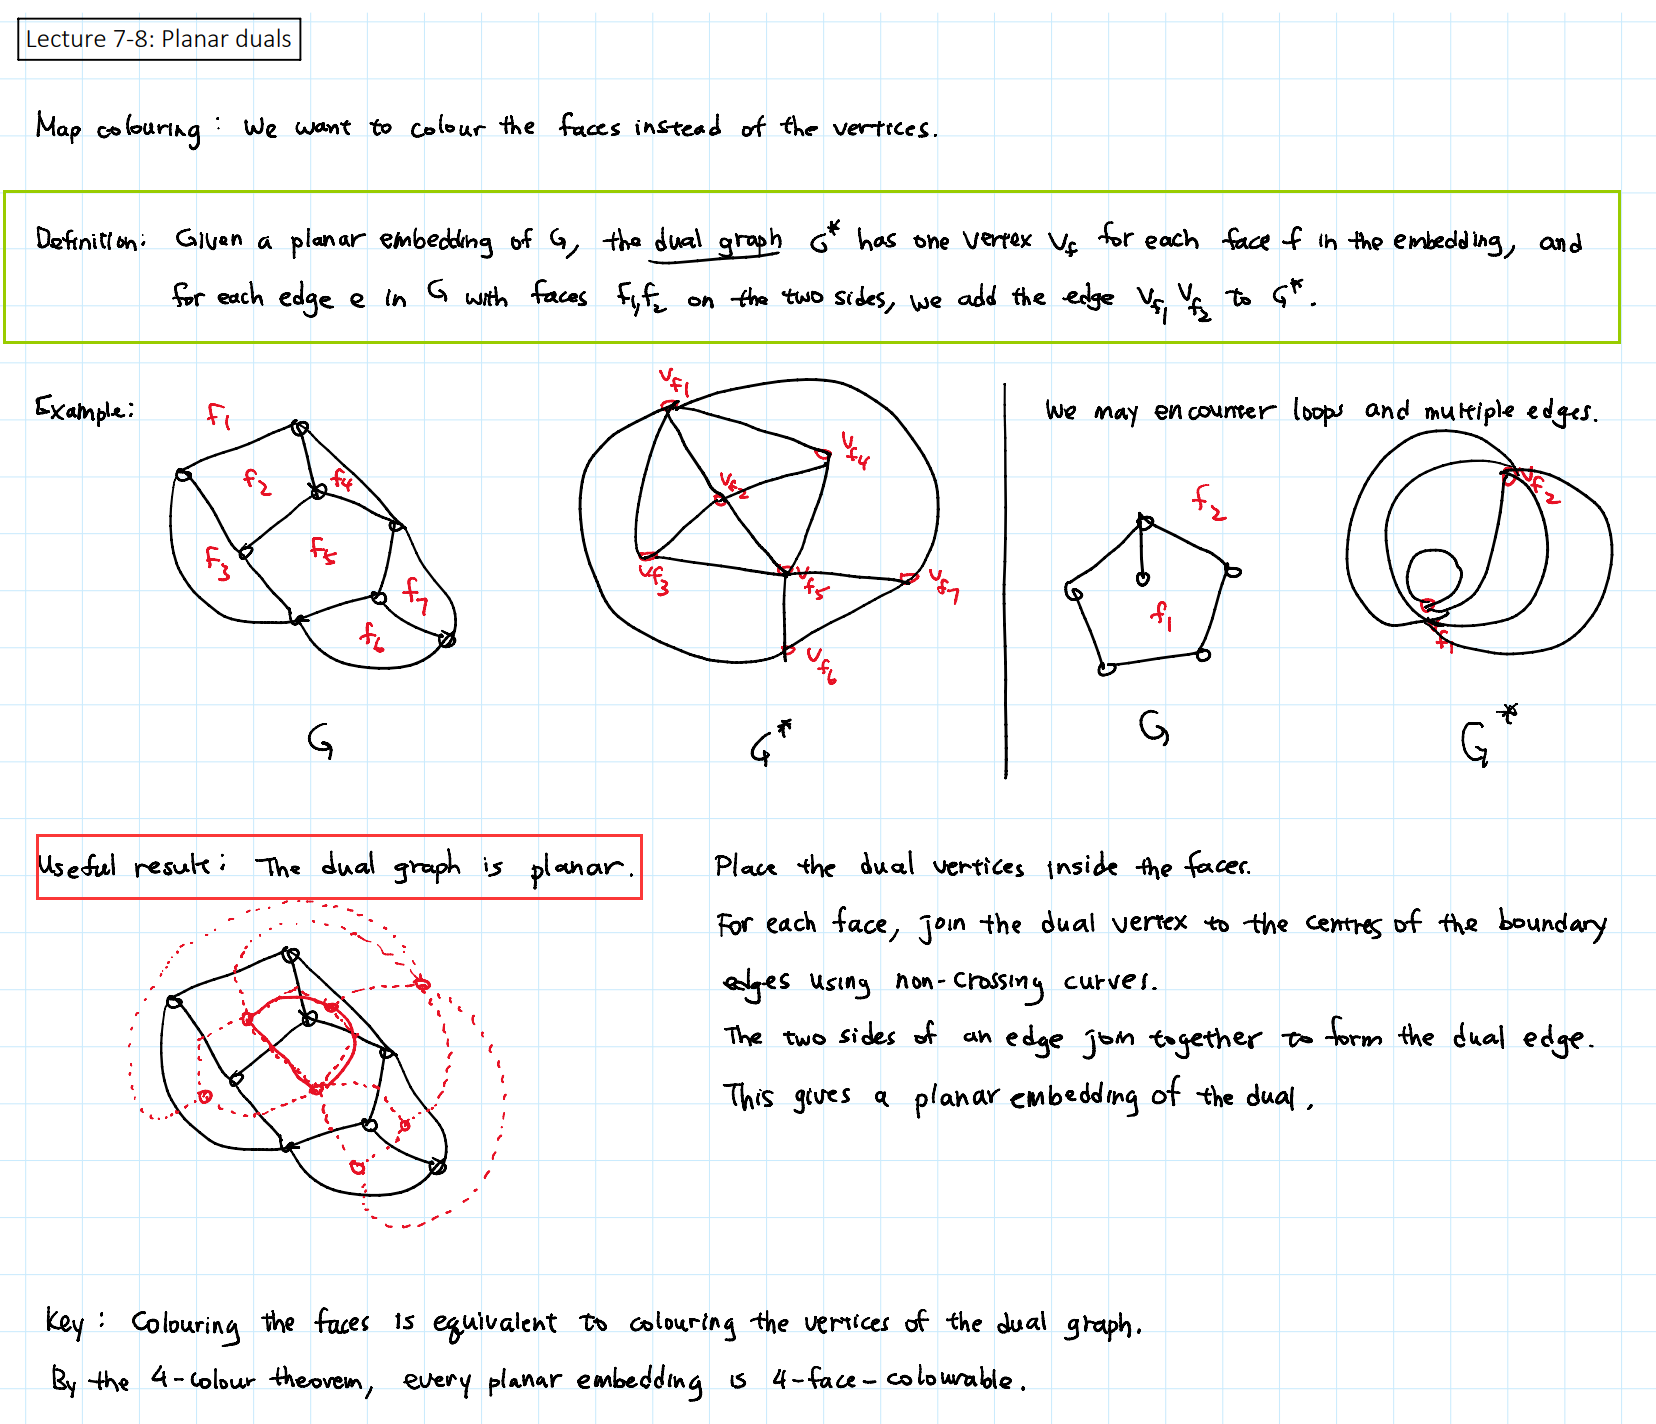 Lecture 7-8: Planar duals
Map colouring: We want to colour the faces instead of the vertices.
Definition: Given a planar embedding of G, the dual graph G* has one vertex v_f for each face f in the embedding, and
for each edge e in G with faces f₁, f₂ on the two sides, we add the edge v_f₁ v_f₂ to G*.
Example:
f₁
f₂
f₄
f₃
f₅
f₇
f₆
G
v_f₁
v_f₄
v_f₂
v_f₃
v_f₅
v_f₇
v_f₆
G*
We may encounter loops and multiple edges.
f₂
f₁
G
v_f₂
f₁
G*
Useful result: The dual graph is planar.
Place the dual vertices inside the faces.
For each face, join the dual vertex to the centres of the boundary
edges using non-crossing curves.
The two sides of an edge join together to form the dual edge.
This gives a planar embedding of the dual.
Key: Colouring the faces is equivalent to colouring the vertices of the dual graph.
By the 4-colour theorem, every planar embedding is 4-face-colourable.